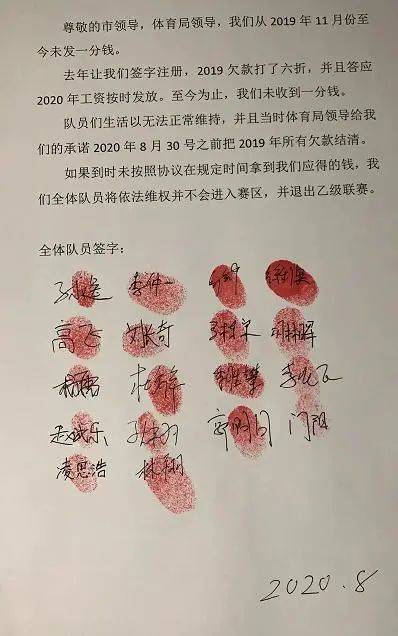 尊敬的市领导，体育局领导，我们从 2019 年 11 月份至
今未发一分钱。
去年让我们签字注册，2019 欠款打了六折，并且答应
2020 年工资按时发放。至今为止，我们未收到一分钱。
队员们生活以无法正常维持，并且当时体育局领导给我
们的承诺 2020 年 8 月 30 号之前把 2019 年所有欠款结清。
如果到时未按照协议在规定时间拿到我们应得的钱，我
们全体队员将依法维权并不会进入赛区，并退出乙级联赛。
全体队员签字：
高飞
门阳
凌思浩 林翔
2020.8